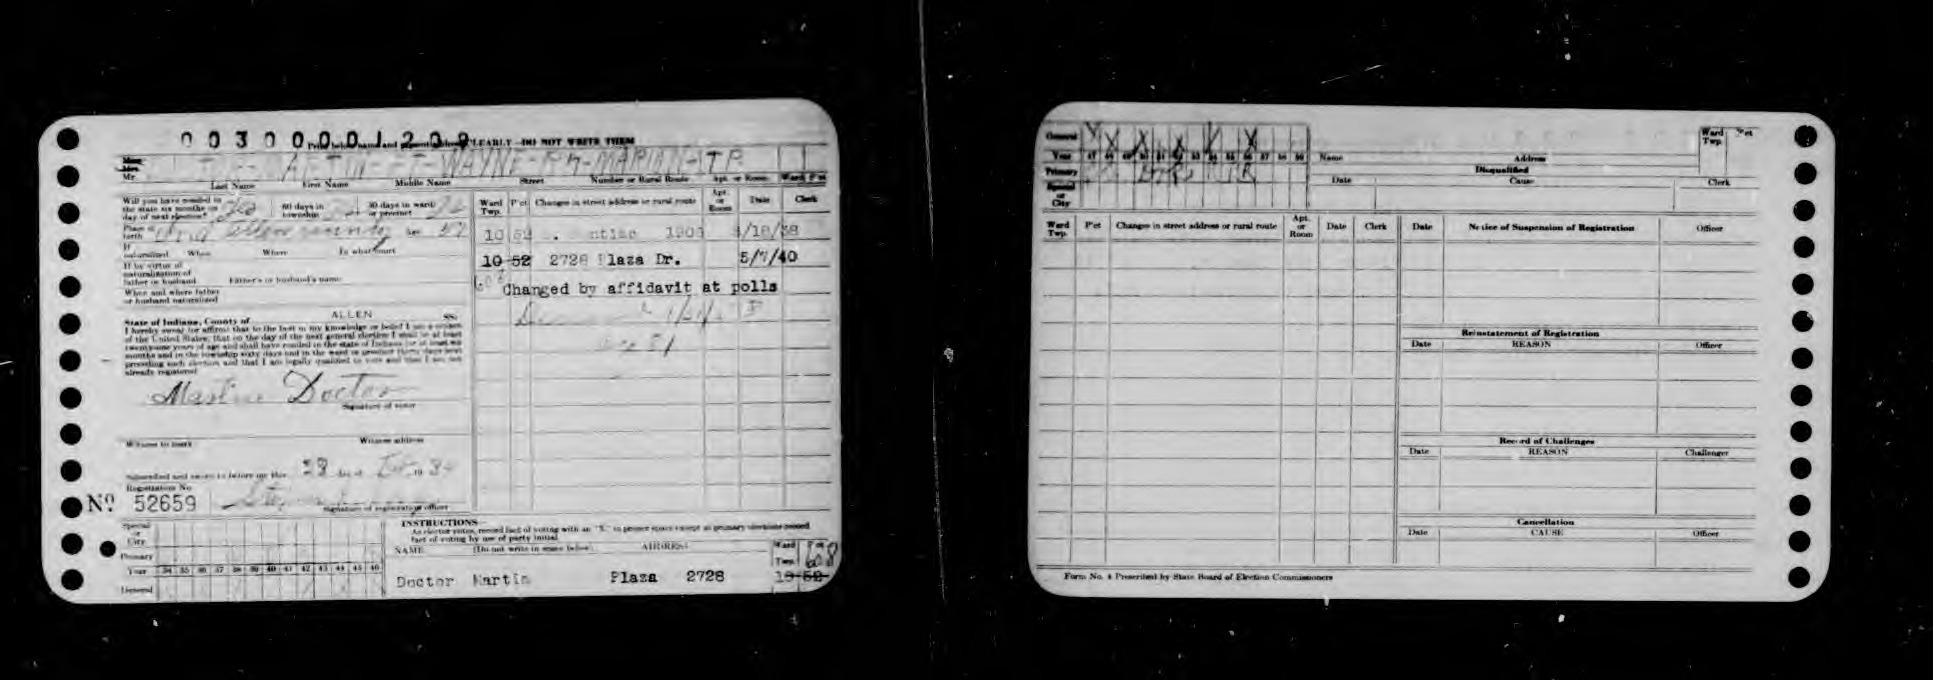 0030001209
CLEARLY—DO NOT WRITE THEM
Mr.
Last Name First Name Middle Name Street Number or Rural Route Apt. or Room Ward P'ct
Will you have resided in the state six months on day of next election? 60 days in township 30 days in ward or precinct
Place of birth Allen county Age
If naturalized When Where In what court
If by virtue of naturalization of father or husband Father's or husband's name
When and where father or husband naturalized
State of Indiana, County of ALLEN SS:
I hereby swear (or affirm) that to the best of my knowledge or belief I am a citizen
of the United States; that on the day of the next general election I shall be at least
twenty-one years of age and shall have resided in the state of Indiana for at least six
months and in the township sixty days and in the ward or precinct thirty days next
preceding such election and that I am legally qualified to vote and that I am not
already registered
Martin Doctor
Signature of voter
Witness to mark Witness address
Subscribed and sworn to before me this 28 day of
Registration No.
No. 52659
Signature of registration officer
Ward Twp. P'ct Changes in street address or rural route Apt. or Room Date Clerk
10 52 1909 /18/38
10 52 2728 Plaza Dr. 5/7/40
Changed by affidavit at polls
Special or City
Primary
Year 34 35 36 37 38 39 40 41 42 43 44 45 46
General
INSTRUCTIONS—
As elector votes, record fact of voting with an "X" in proper space except at primary elections record
fact of voting by use of party initial.
NAME (Do not write in space below) ADDRESS Ward Twp. P'ct
Doctor Martin Plaza 2728 10-52 628
General X X X X
Year 47 48 49 50 51 52 53 54 55 56 57 58 59
Primary R R
Special or City
Name Address Ward Twp. P'ct
Disqualified
Date Cause Clerk
Ward Twp. P'ct Changes in street address or rural route Apt. or Room Date Clerk
Date Notice of Suspension of Registration Officer
Reinstatement of Registration
Date REASON Officer
Record of Challenges
Date REASON Challenger
Cancellation
Date CAUSE Officer
Form No. 4 Prescribed by State Board of Election Commissioners